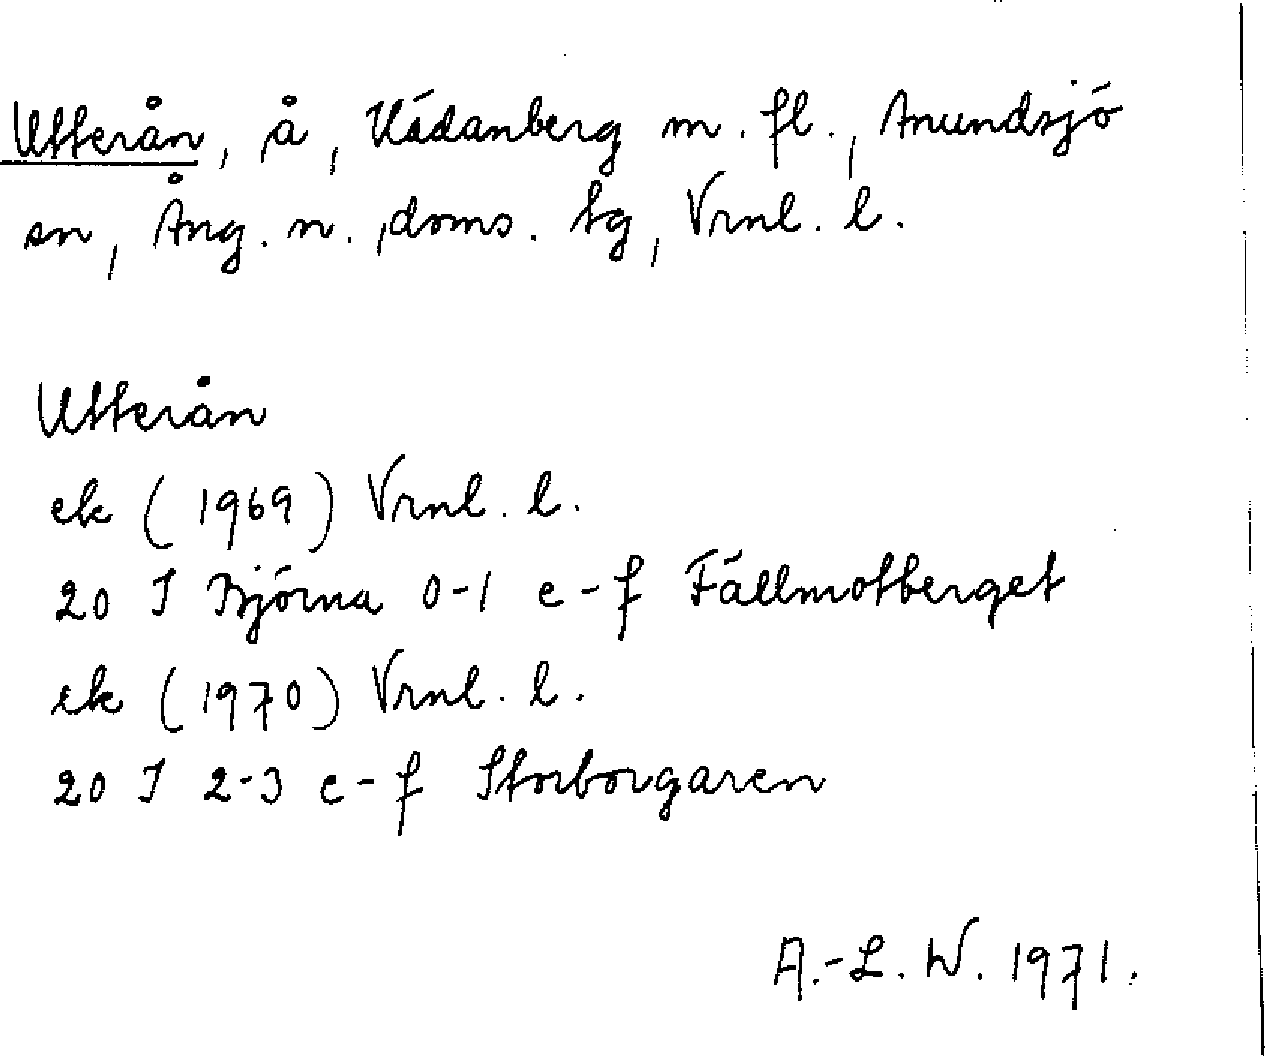 Utterån, å, Kädanberg m. fl., Anundsjö
sn, Ång. n. doms. tg, Vrnl. l.
Utterån
ek (1969) Vrnl. l.
20 J Björna 0-1 e-f Fällmotberget
ek (1970) Vrnl. l.
20 J 2-3 e-f Storborgaren
A.-L. W. 1971.